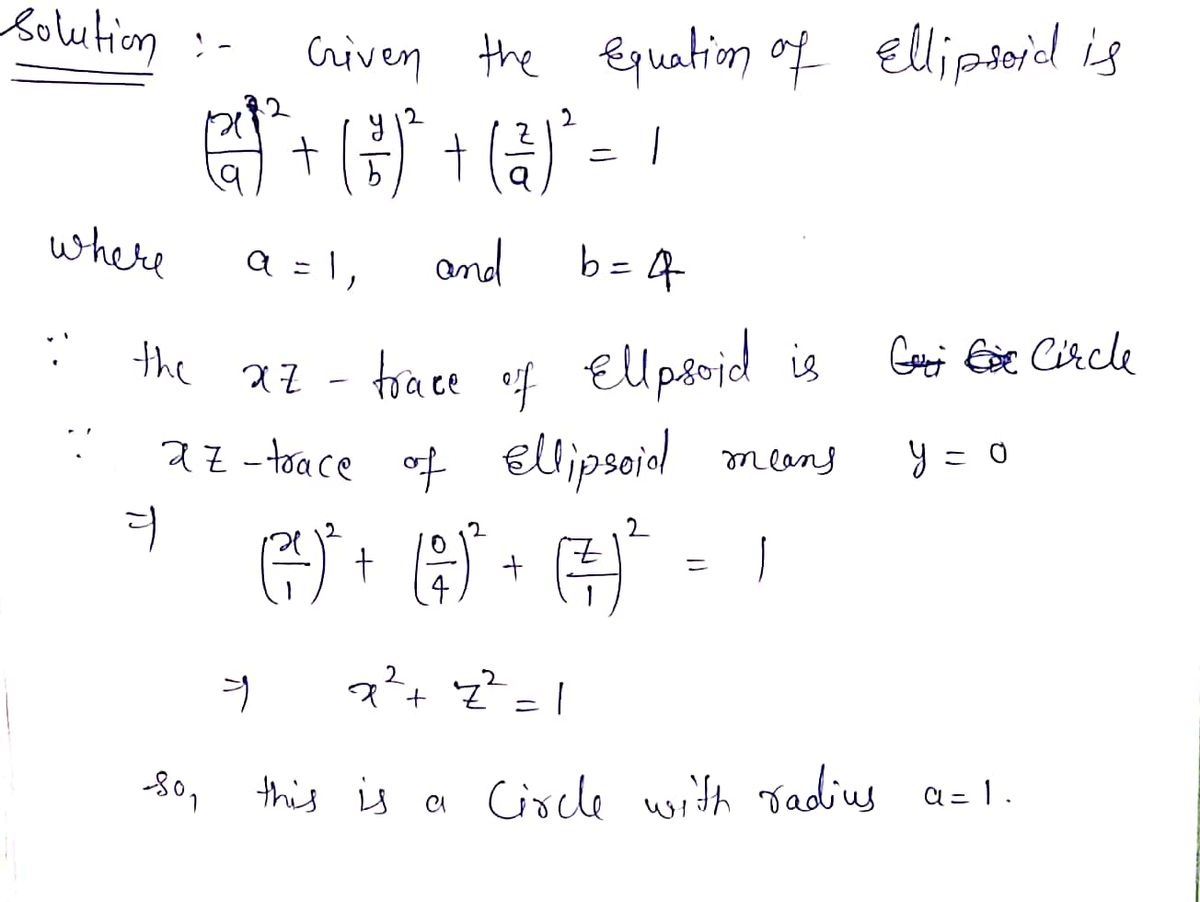 Solution :- Given the Equation of Ellipsoid is
(x/a)² + (y/b)² + (z/a)² = 1
where a = 1, and b = 4
∵ the xz - trace of Ellpsoid is Circle
∵ xz - trace of Ellipsoid means y = 0
⇒ (x/1)² + (0/4)² + (z/1)² = 1
⇒ x² + z² = 1
so, this is a Circle with radius a = 1.